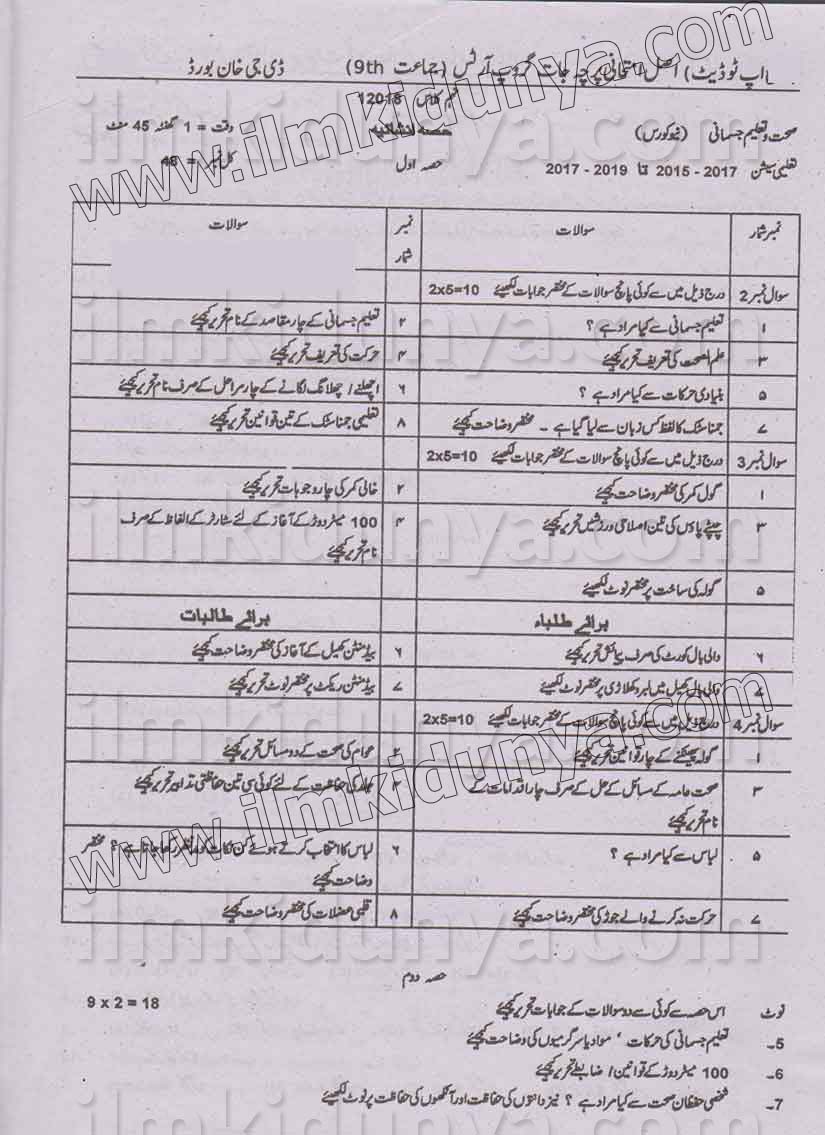 (اپ ٹو ڈیٹ) اصل امتحانی پرچہ جات گروپ آرٹس (جماعت 9th) ڈی جی خان بورڈ
12018
صحت و تعلیم جسمانی (نیو کورس) حصہ انشائیہ وقت = 1 گھنٹہ 45 منٹ
تعلیمی سیشن 2017 - 2015 تا 2019 - 2017 حصہ اول کل نمبر = 48
نمبر شمار سوالات نمبر شمار سوالات
سوال نمبر 2 درج ذیل میں سے کوئی پانچ سوالات کے مختصر جوابات لکھیئے 2x5=10
۱ تعلیم جسمانی سے کیا مراد ہے ؟ ۲ تعلیم جسمانی کے چار مقاصد کے نام تحریر کیجیئے
۳ علم الصحت کی تعریف تحریر کیجیئے ۴ حرکت کی تعریف تحریر کیجیئے
۵ بنیادی حرکات سے کیا مراد ہے ؟ ۶ اچھلنے / چھلانگ لگانے کے چار مراحل کے صرف نام تحریر کیجیئے
۷ جمناسٹک کا لفظ کس زبان سے لیا گیا ہے ۔ مختصر وضاحت کیجیئے ۸ تعلیمی جمناسٹک کے تین قوانین تحریر کیجیئے
سوال نمبر 3 درج ذیل میں سے کوئی پانچ سوالات کے مختصر جوابات لکھیئے 2x5=10
۱ گول کمر کی مختصر وضاحت کیجیئے ۲ خالی کمر کی چار وجوہات تحریر کیجیئے
۳ چپٹے پاؤں کی تین اصلاحی ورزشیں تحریر کیجیئے ۴ 100 میٹر دوڑ کے آغاز کے لئے سٹارٹر کے الفاظ کے صرف
نام تحریر کیجیئے
۵ گولہ کی ساخت پر مختصر نوٹ لکھیئے
برائے طلباء برائے طالبات
۶ والی بال کورٹ کی صرف پیمائش تحریر کیجیئے ۶ بیڈمنٹن کھیل کے آغاز کی مختصر وضاحت کیجیئے
۷ والی بال کھیل میں لبرو کھلاڑی پر مختصر نوٹ لکھیئے ۷ بیڈمنٹن ریکٹ پر مختصر نوٹ تحریر کیجیئے
سوال نمبر 4 درج ذیل میں سے کوئی پانچ سوالات کے مختصر جوابات لکھیئے 2x5=10
۱ گولہ پھینکنے کے چار قوانین تحریر کیجیئے ۲ عوام کی صحت کے دو مسائل تحریر کیجیئے
۳ صحت عامہ کے مسائل کے حل کے صرف چار اقدامات کے ۴ جلد کی حفاظت کے لئے کوئی سی تین حفاظتی تدابیر تحریر کیجیئے
نام تحریر کیجیئے
۵ لباس سے کیا مراد ہے ؟ ۶ لباس کا انتخاب کرتے ہوئے کن نکات کو مدنظر رکھا جاتا ہے ؟ مختصر
وضاحت کیجیئے
۷ حرکت نہ کرنے والے جوڑ کی مختصر وضاحت کیجیئے ۸ قلبی عضلات کی مختصر وضاحت کیجیئے
حصہ دوم
نوٹ اس حصہ سے کوئی سے دو سوالات کے جوابات تحریر کیجیئے 9 x 2 = 18
5۔ تعلیم جسمانی کی حرکات ، مواد یا سرگرمیوں کی وضاحت کیجیئے
6۔ 100 میٹر دوڑ کے قوانین / ضابطے تحریر کیجیئے
7۔ شخصی حفظان صحت سے کیا مراد ہے ؟ نیز دانتوں کی حفاظت اور آنکھوں کی حفاظت پر نوٹ لکھیئے
www.ilmkidunya.com
www.ilmkidunya.com
ilmkidunya.com
ilmkidunya.com
ilmkidunya.com
ilmkidunya.com
ilmkidunya.com